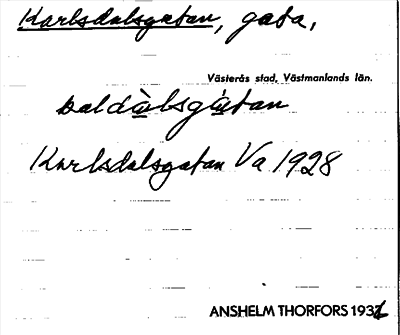 Karlsdalsgatan, gata,
Västerås stad, Västmanlands län.
Karlsdalsgatan Va 1928
ANSHELM THORFORS 1931